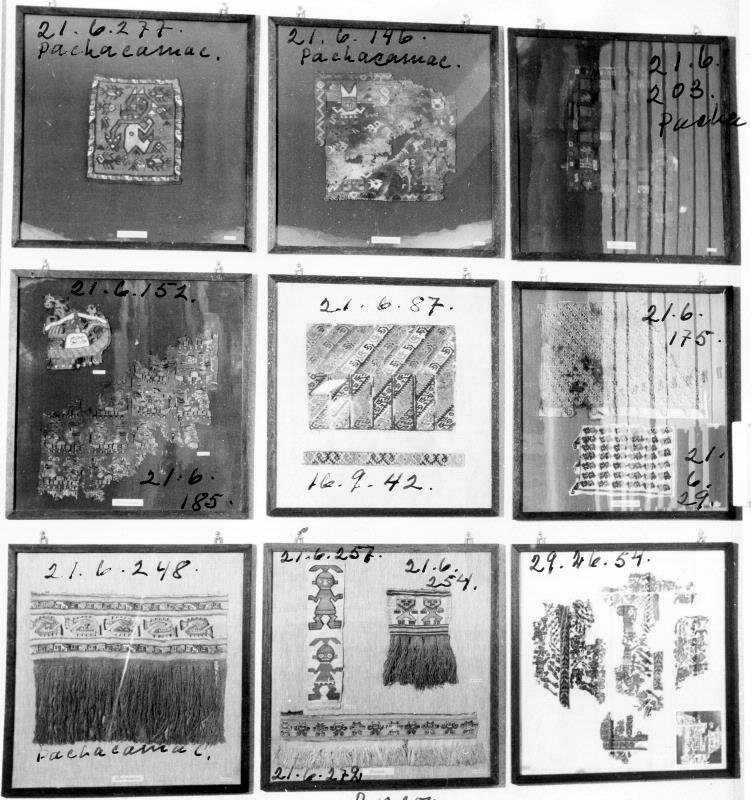 21.6.277.
Pachacamac.
21.6.146.
Pachacamac.
21.6.
203.
Pacha
21.6.152.
21.6.
185.
21.6.87.
16.9.42.
21.6.
175.
21.
6.
29.
21.6.248.
Pachacamac.
21.6.257.
21.6.
254.
21.6.272
29.46.54.